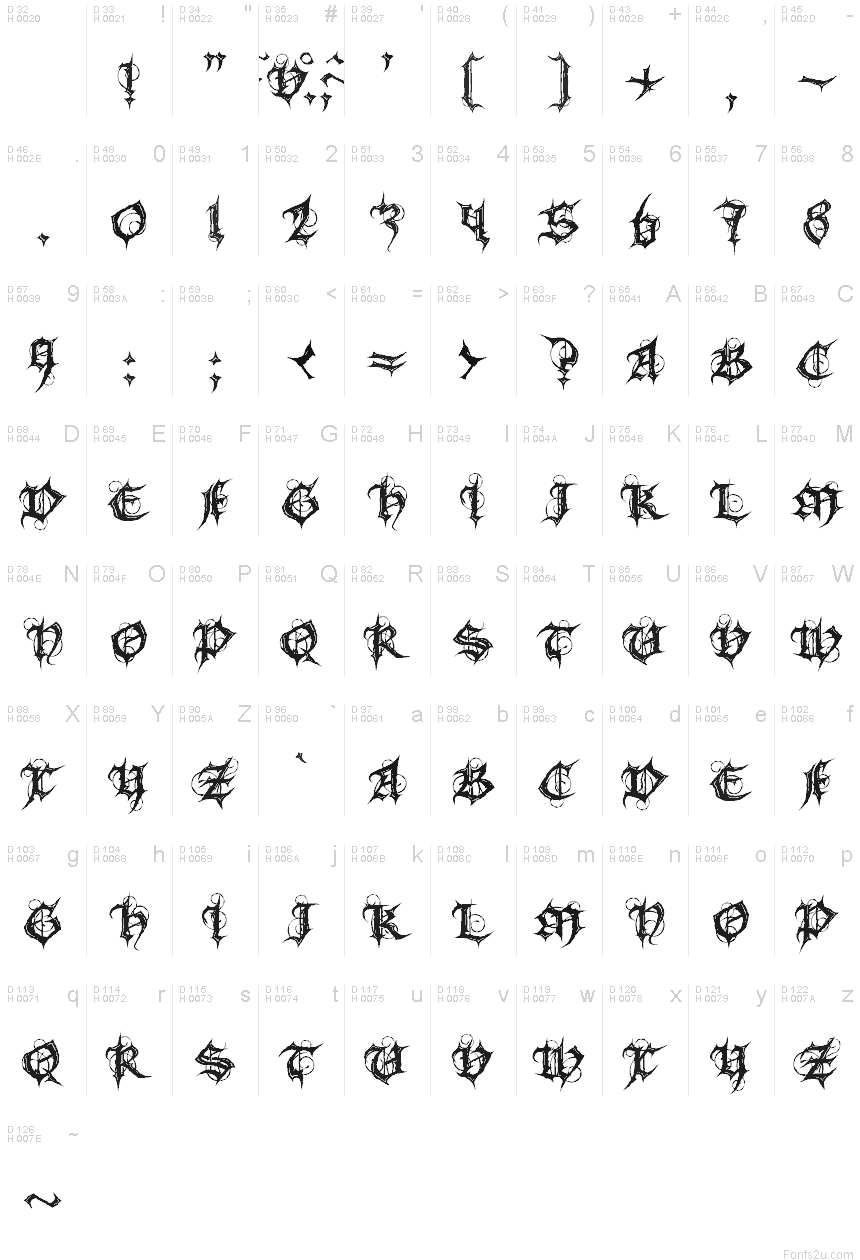 D 32 H 0020 D 33 H 0021 ! D 34 H 0022 " D 35 H 0023 # D 39 H 0027 ' D 40 H 0028 ( D 41 H 0029 ) D 43 H 002B + D 44 H 002C , D 45 H 002D -
! " ' ( ) + , -
D 46 H 002E . D 48 H 0030 0 D 49 H 0031 1 D 50 H 0032 2 D 51 H 0033 3 D 52 H 0034 4 D 53 H 0035 5 D 54 H 0036 6 D 55 H 0037 7 D 56 H 0038 8
. 0 1 2 3 4 5 6 7 8
D 57 H 0039 9 D 58 H 003A : D 59 H 003B ; D 60 H 003C < D 61 H 003D = D 62 H 003E > D 63 H 003F ? D 65 H 0041 A D 66 H 0042 B D 67 H 0043 C
9 : ; < = > ? A B C
D 68 H 0044 D D 69 H 0045 E D 70 H 0046 F D 71 H 0047 G D 72 H 0048 H D 73 H 0049 I D 74 H 004A J D 75 H 004B K D 76 H 004C L D 77 H 004D M
D E F G H I J K L M
D 78 H 004E N D 79 H 004F O D 80 H 0050 P D 81 H 0051 Q D 82 H 0052 R D 83 H 0053 S D 84 H 0054 T D 85 H 0055 U D 86 H 0056 V D 87 H 0057 W
N O P Q R S T U V W
D 88 H 0058 X D 89 H 0059 Y D 90 H 005A Z D 96 H 0060 ` D 97 H 0061 a D 98 H 0062 b D 99 H 0063 c D 100 H 0064 d D 101 H 0065 e D 102 H 0066 f
X Y Z ` A B C D E F
D 103 H 0067 g D 104 H 0068 h D 105 H 0069 i D 106 H 006A j D 107 H 006B k D 108 H 006C l D 109 H 006D m D 110 H 006E n D 111 H 006F o D 112 H 0070 p
G H I J K L M N O P
D 113 H 0071 q D 114 H 0072 r D 115 H 0073 s D 116 H 0074 t D 117 H 0075 u D 118 H 0076 v D 119 H 0077 w D 120 H 0078 x D 121 H 0079 y D 122 H 007A z
Q R S T U V W X Y Z
D 126 H 007E ~
~
Fonts2u.com